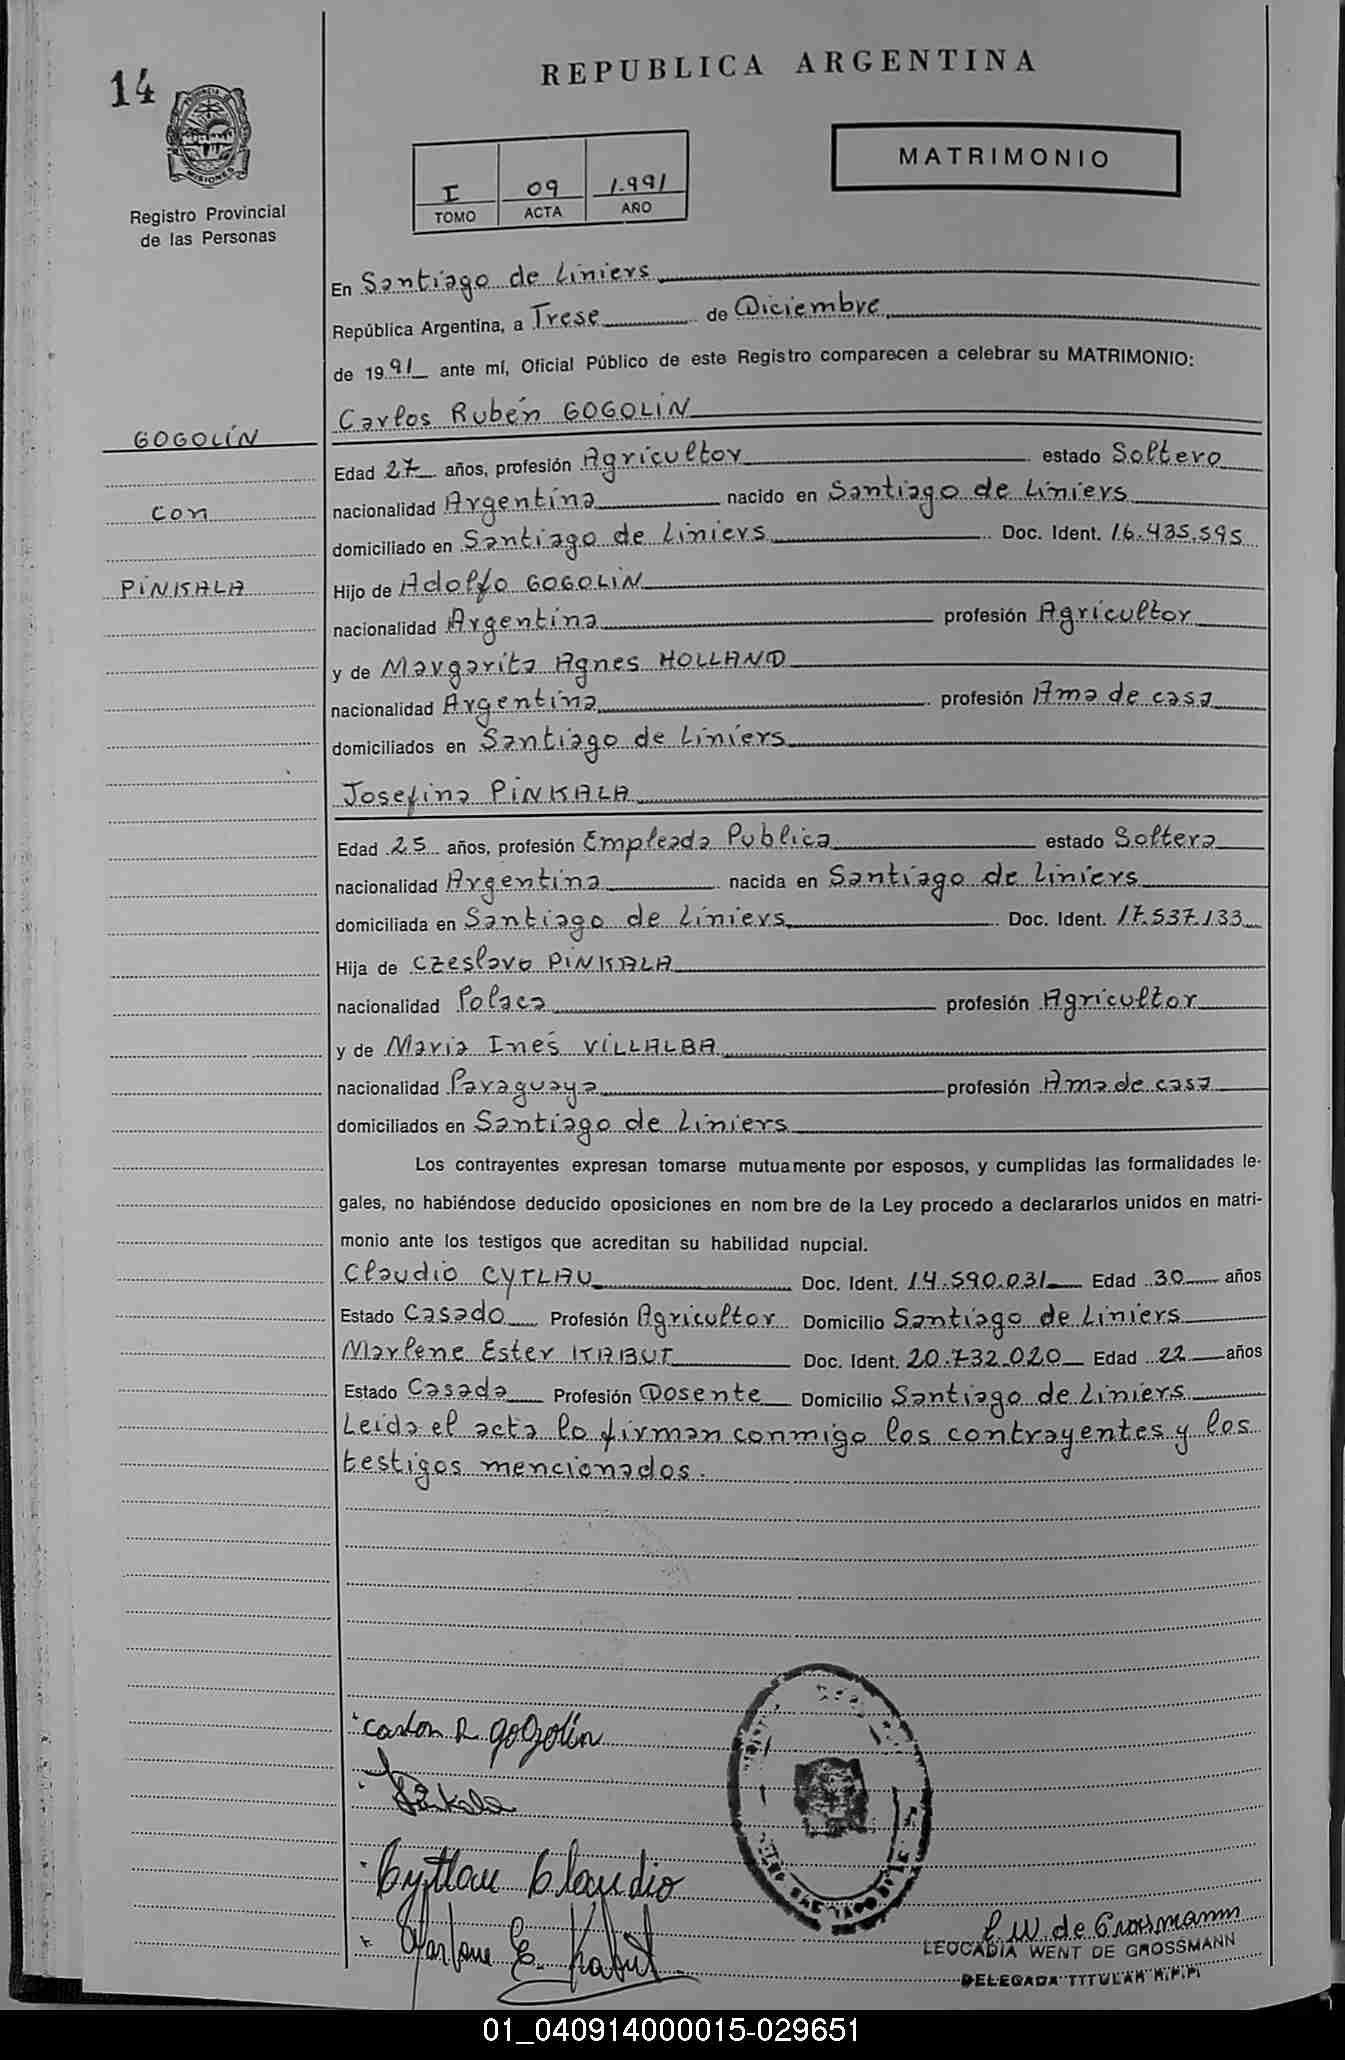 14
MISIONES
Registro Provincial
de las Personas
REPUBLICA ARGENTINA
I 09 1.991
TOMO ACTA AÑO
MATRIMONIO
En Santiago de Liniers
República Argentina, a Trese de Diciembre
de 1991 ante mí, Oficial Público de este Registro comparecen a celebrar su MATRIMONIO:
Carlos Rubén GOGOLIN
GOGOLÍN
Edad 27 años, profesión Agricultor estado Soltero
nacionalidad Argentina nacido en Santiago de Liniers
con
domiciliado en Santiago de Liniers Doc. Ident. 16.435.595
PINKALA
Hijo de Adolfo GOGOLIN
nacionalidad Argentina profesión Agricultor
y de Margarita Agnes HOLLAND
nacionalidad Argentina profesión Ama de casa
domiciliados en Santiago de Liniers
Josefina PINKALA
Edad 25 años, profesión Empleada Publica estado Soltera
nacionalidad Argentina nacida en Santiago de Liniers
domiciliada en Santiago de Liniers Doc. Ident. 17.537.133
Hija de Czeslavo PINKALA
nacionalidad Polaca profesión Agricultor
y de Maria Inés VILLALBA
nacionalidad Paraguaya profesión Ama de casa
domiciliados en Santiago de Liniers
Los contrayentes expresan tomarse mutuamente por esposos, y cumplidas las formalidades le-
gales, no habiéndose deducido oposiciones en nom bre de la Ley procedo a declararlos unidos en matri-
monio ante los testigos que acreditan su habilidad nupcial.
Claudio CYTLAU Doc. Ident. 14.590.031 Edad 30 años
Estado Casado Profesión Agricultor Domicilio Santiago de Liniers
Marlene Ester KABUT Doc. Ident. 20.732.020 Edad 22 años
Estado Casada Profesión Dosente Domicilio Santiago de Liniers
Leida el acta lo firman conmigo los contrayentes y los
testigos mencionados.
Carlos R gogolin
Pinkala
Cytlau Claudio
Marlene E. Kabut
L. W. de Grossmann
LEOCADIA WENT DE GROSSMANN
DELEGADA TITULAR R.P.P.
01_040914000015-029651